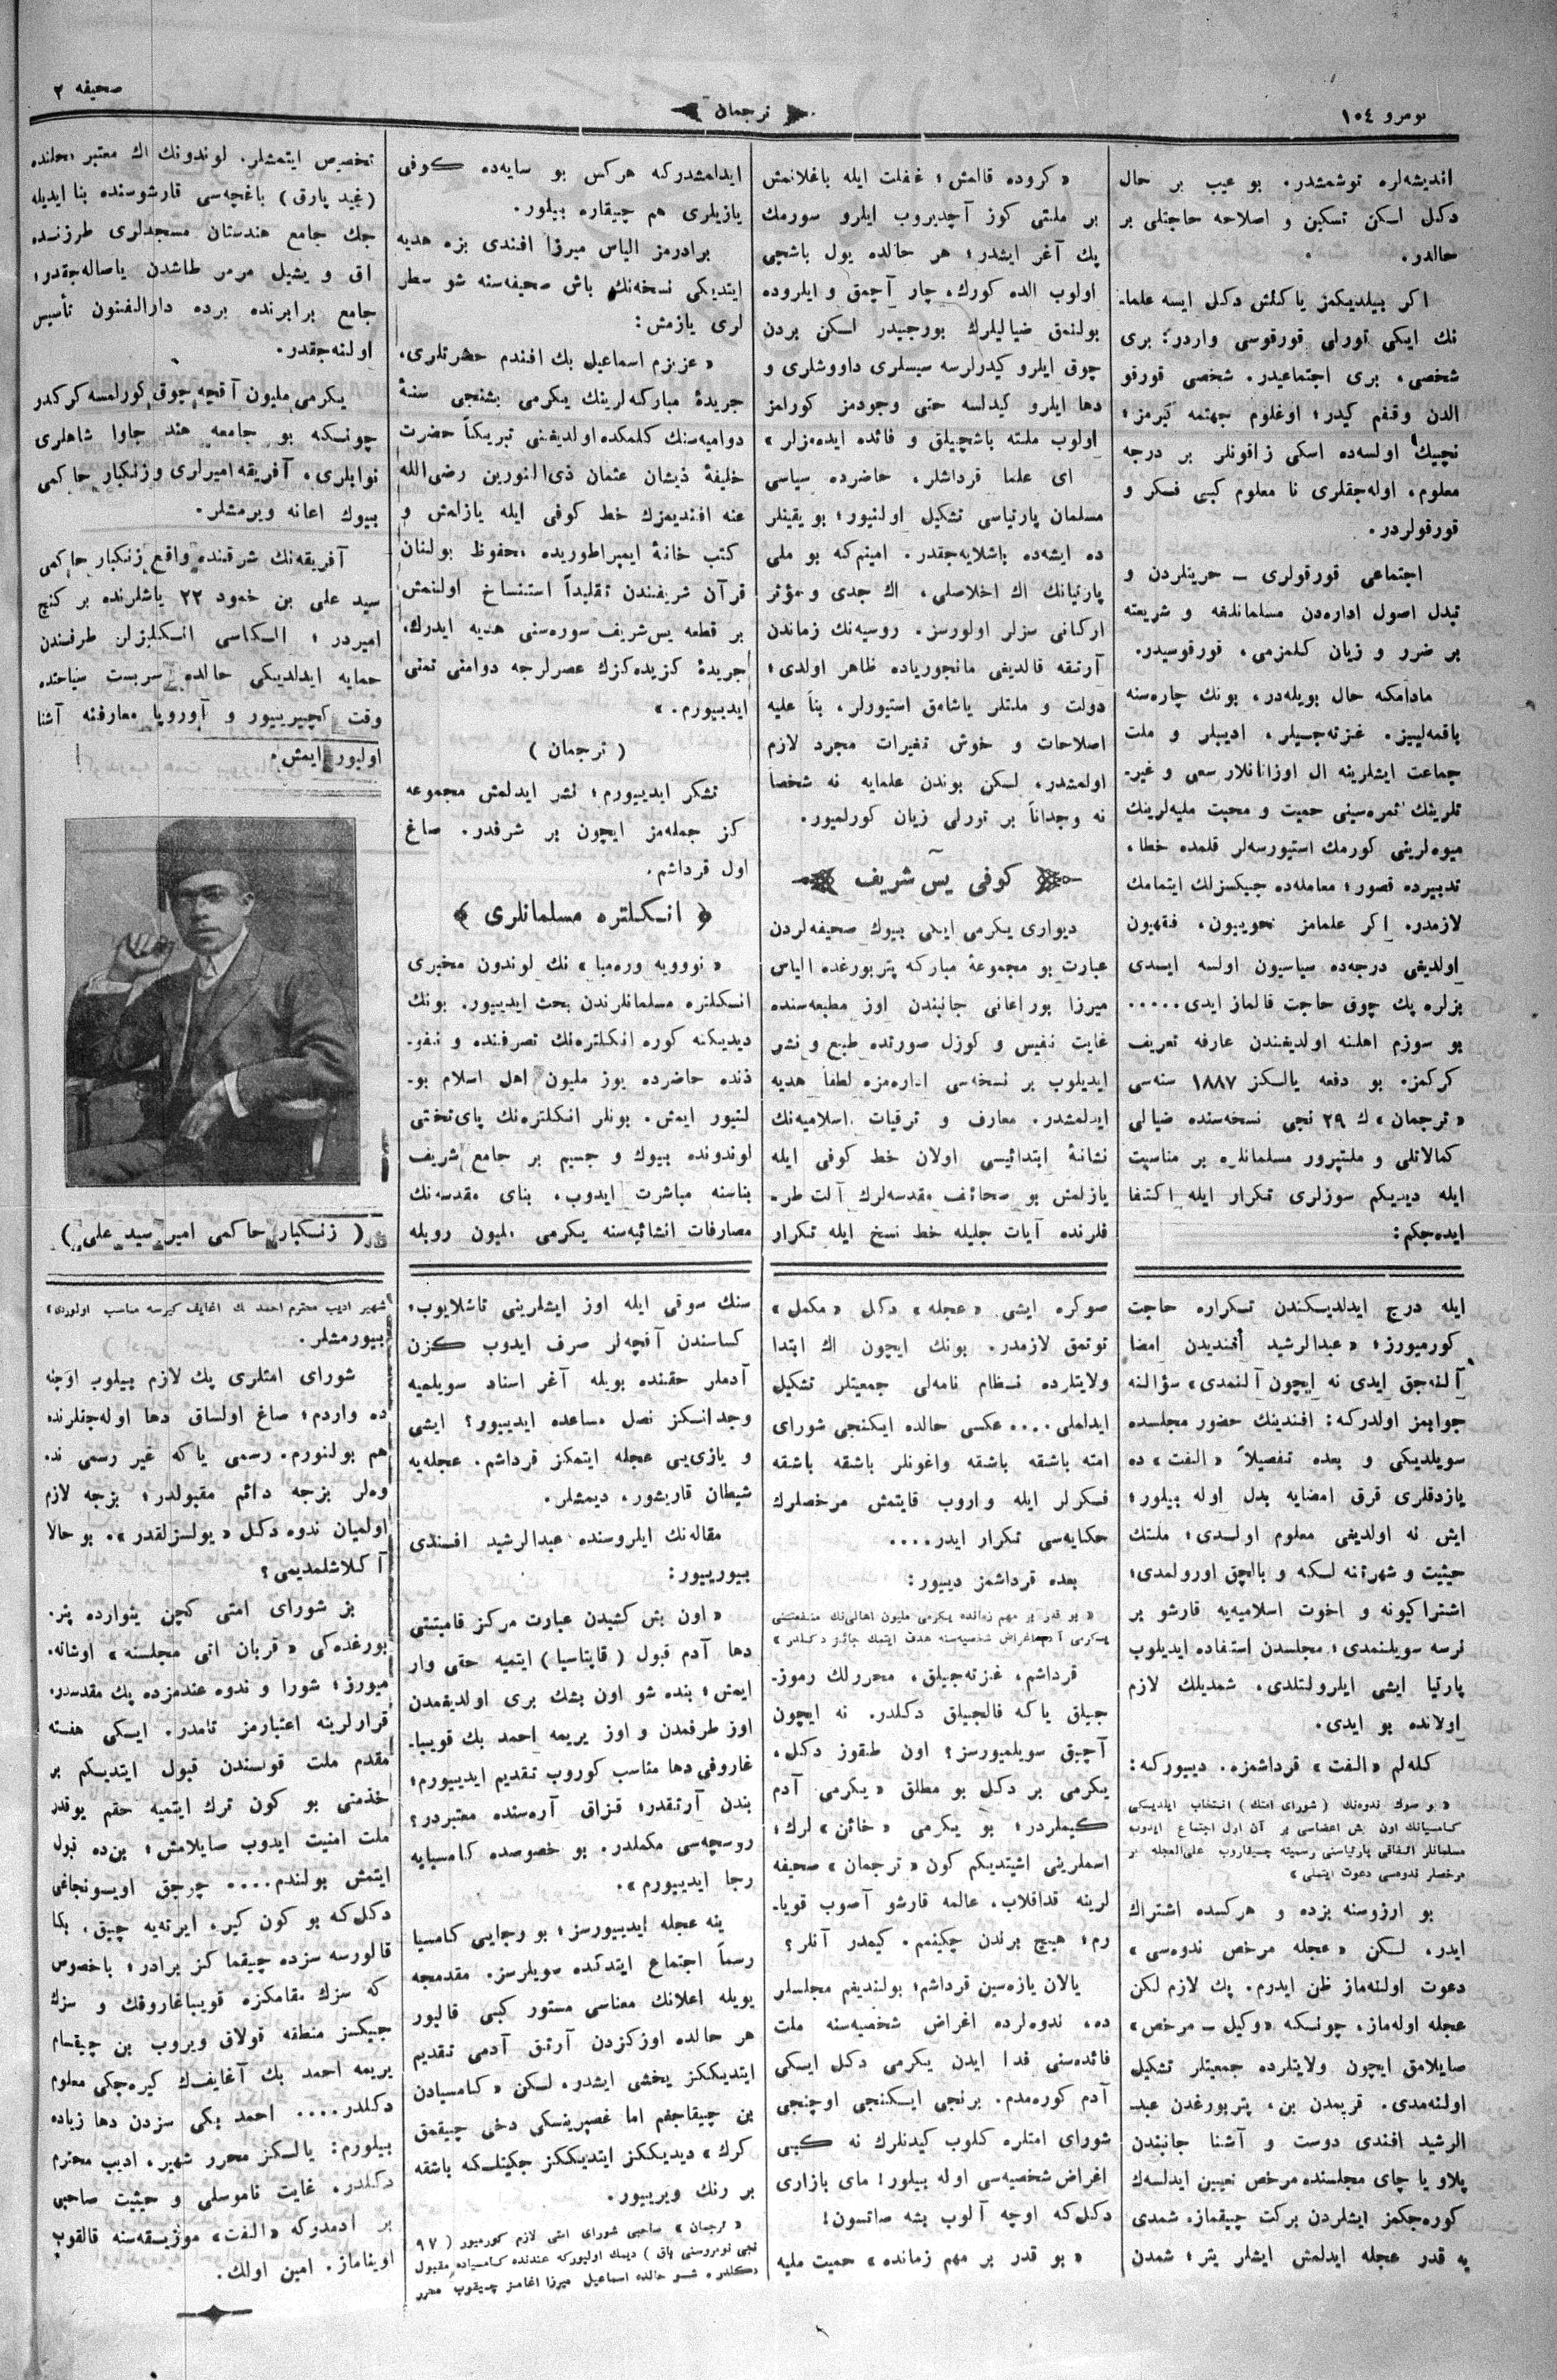 نومرو ١٠٤
ترجمان
صحيفه ٢
انديشه‌لره توشمشدر. بو عيب بر حال
دكل لسكن تسكين و اصلاحه حاجتلى بر
حالدر.
اكر بيلديكمز ياكلش دكل ايسه علما-
نك ايكى تورلى قورقوسى واردر: برى
شخصى، برى اجتماعيدر. شخصى قورقو
الدن وقفم كيدر؛ اوغلوم جهتمه كيرمز؛
نچيك اولسه‌ده اسكى زاقونلر بر درجه
معلوم، اوله‌جقلرى نا معلوم كبى فكر و
قورقولردر.
اجتماعى قورقولرى ــ حريتلردن و
تبدل اصول اداره‌دن مسلمانلغه و شريعته
بر ضرر و زيان كلمزمى، قورقوسيدر.
مادامكه حال بويله‌در، بونك چاره‌سنه
باقمه‌ليييز. غزته‌جيلر، اديبلر و ملت
جماعت ايشلرينه ال اوزاتانلار سعى و غير-
تلرينك ثمره‌سينى حميت و محبت مليه‌لرينك
ميوه‌لرينى كورمك استيورسه‌لر قلمده خطا،
تدبيرده قصور؛ معامله‌ده چيكسزلك ايتمامك
لازمدر. اكر علمامز نحوييون، فقهيون
اولديغى درجه‌ده سياسيون اولسه ايسدى
بزلره پك چوق حاجت قالماز ايدى.....
بو سوزم اهلنه اولديغندن عارفه تعريف
كركمز. بو دفعه يالكز ١٨٨٧ سنه‌سى
«ترجمان» ك ٢٩ نجى نسخه‌سنده ضيالى
كمالاتلى و ملتپرور مسلمانلره بر مناسبت
ايله ديديكم سوزلرى تكرار ايله اكتفا
ايده‌جكم:
«كروده قالمش؛ غفلت ايله باغلانمش
بر ملتى كوز آچديروب ايلرو سورمك
پك آغر ايشدر؛ هر حالده يول باشچى
اولوب الده كورك، چار آچمق و ايلروده
بولنمق ضياليلرك بورجيدر لسكن بردن
چوق ايلرو كيدرلرسه سيسلرى داووشلرى و
دها ايلرو كيدلسه حتى وجودمز كورلمز
اولوب ملته باشچيلق و فائده ايده‌مزلر»
اى علما قرداشلر، حاضرده سياسى
مسلمان پارتياسى تشكيل اولنيور؛ بو يقينلر
ده ايشه‌ده باشلايه‌جقدر. امينم‌كه بو ملى
پارتيانك اك اخلاصلى، اك جدى و مؤثر
اركانى سزلر اولورسز. روسيه‌نك زماندن
آرتقه قالديغى مانجورياده ظاهر اولدى؛
دولت و ملتلر ياشامق استيورلر، بنأ عليه
اصلاحات و خوش تغيرات مجرد لازم
اولمشدر، لسكن بوندن علمايه نه شخصاً
نه وجداناً بر تورلى زيان كورلميور.
كوفى يس شريف
ديوارى يكرمى ايكى بيوك صحيفه‌لردن
عبارت بو مجموعهٔ مباركه پتربورغده الياس
ميرزا بوراغانى جانبندن اوز مطبعه‌سنده
غايت نفيس و كوزل صورتده طبع و نشر
ايديلوب بر نسخه‌سى اداره‌مزه لطفاً هديه
ايدلمشدر. معارف و ترقيات اسلاميه‌نك
نشانهٔ ابتدائيسى اولان خط كوفى ايله
يازلمش بو صحائف مقدسه‌لرك آلت طر-
فلرنده آيات جليله خط نسخ ايله تكرار
ايدلمشدركه هركس بو سايه‌ده كوفى
يازيلرى هم چيقاره بيلور.
برادرمز الياس ميرزا افندى بزه هديه
ايتديكى نسخه‌نك باش صحيفه‌سنه شو سطر
لرى يازمش:
«عزيزم اسماعيل بك افندم حضرتلرى،
جريدهٔ مباركه‌لرينك يكرمى بشنجى سنهٔ
دواميه‌سنك كلمكده اولديغنى تبريكاً حضرت
خليفهٔ ذيشان عثمان ذى النورين رضى‌الله
عنه افنديمزك خط كوفى ايله يازلمش و
كتب خانهٔ ايمپراطوريده محفوظ بولنان
قرآن شريفندن تقليداً استنساخ اولنمش
بر قطعه يس شريف سوره‌سنى هديه ايدرك،
جريدهٔ كزيده‌كزك عصرلرجه دوامنى تمنى
ايدييورم.»
(ترجمان)
تشكر ايدييورم؛ نشر ايدلمش مجموعه
كز جمله‌مز ايچون بر شرفدر. صاغ
اول قرداشم.
﴿ انسكلتره مسلمانلرى ﴾
«نوويه وره‌ميا» نك لوندون مخبرى
انسكلتره مسلمانلرندن بحث ايدييور. بونك
ديديكنه كوره انكلتره‌نك تصرفنده و نفو-
ذنده حاضرده يوز مليون اهل اسلام بو-
لنيور ايمش. بونلر انكلتره‌نك پاى‌تختى
لوندونده بيوك و جسيم بر جامع شريف
بناسنه مباشرت ايدوب، بناى مقدسه‌نك
مصارفات انشائيه‌سنه يكرمى مليون روبله
تخصيص ايتمشلر. لوندونك اك معتبر محلنده
(غيد پارق) باغچه‌سى قارشوسنده بنا ايديله
جك جامع هندستان مسجدلرى طرزنده
آق و يشيل مرمر طاشدن ياصاله‌جقدر؛
جامع برابرنده برده دارالفنون تأسيس
اولنه‌جقدر.
يكرمى مليون آقچه چوق كورلمسه كركدر
چونسكه بو جامعه هند جاوا شاهلرى
نوابلرى، آفريقه اميرلرى و زنكبار حاكمى
بيوك اعانه ويرمشلر.
آفريقه‌نك شرقنده واقع زنكبار حاكمى
سيد على بن حمود ٢٢ ياشلرنده بر كنج
اميردر؛ السكاسى انسكليزلر طرفندن
حمايه ايدلديكى حالده سربست سياحتده
وقت كچيرييور و آوروپا معارفنه آشنا
اوليور ايمش.
(زنسكبار حاكمى امير سيد على)
ايله درج ايدلديسكندن تسكراره حاجت
كورميورز؛ «عبدالرشيد أفنديدن امضا
آلنه‌جق ايدى نه ايچون آلنمدى» سؤالنه
جوابمز اولدركه: افندينك حضور مجلسده
سويلديكى و بعده تفصيلاً «الفت» ده
يازدقلرى قرق امضايه بدل اوله بيلور؛
ايش نه اولديغى معلوم اولسدى؛ ملتك
حيثيت و شهرتنه لسكه و بالچق اورولمدى؛
اشتراكيونه و اخوت اسلاميه‌يه قارشو بر
نرسه سويلنمدى؛ مجلسدن استفاده ايديلوب
پارتيا ايشى ايلرولتلدى. شمديلك لازم
اولانده بو ايدى.
كله‌لم «الفت» قرداشمزه. دييوركه:
«بو صوك ندوه‌نك (شوراى امتك) انتخاب ايلديسكى
كامسيانك اون بش اعضاسى بر آن اول اجتماع ايدوب
مسلمانلر اتفاقى پارتياسنى رسميته چيقاروب على‌العجله بر
مرخصلر ندوه‌سى دعوت ايتملى»
بو ارزوسنه بزده و هركسده اشتراك
ايدر، لسكن «عجله مرخص ندوه‌سى»
دعوت اولنه‌ماز ظن ايدرم. پك لازم لكن
عجله اوله‌ماز، چونسكه «وكيل ــ مرخص»
صايلامق ايچون ولايتلرده جمعيتلر تشكيل
اولنه‌مدى. قريمدن بن، پتربورغدن عبد
الرشيد افندى دوست و آشنا جانندن
پلاو يا چاى مجلسنده مرخص تعيين ايدلسه‌ك
كوره‌جكمز ايشلردن بركت چيقماز. شمدى
يه قدر عجله ايدلمش ايشلر يتر؛ شمدن
صوكره ايشى «عجله» دكل «مكمل»
توتمق لازمدر. بونك ايچون اك ابتدا
ولايتلرده نسظام نامه‌لى جمعيتلر تشكيل
ايدلملى.... عكسى حالده ايسكنجى شوراى
امته باشقه باشقه واغونلر باشقه باشقه
فسكرلر ايله واروب قايتمش مرخصلرك
حكايه‌سى تكرار ايدر....
بعده قرداشمز دييور:
«بو قدر بر مهم زمانده يسكرمى مليون اهالى‌نك منفعتنى
يسكرمى آدم اغراض شخصيه‌سنه هدف ايتمك جائز دكلدر»
قرداشم، غزته‌جيلق، محررلك رموز-
جيلق ياكه فالجيلق دكلدر. نه ايچون
آچيق سويلميورسز؟ اون طقوز دكل،
يكرمى بر دكل بو مطلق «يكرمى آدم
كيملردر؛ بو يكرمى «خائن» لرك؛
اسملرينى اشيتديكم كون «ترجمان» صحيفه
لرينه قداقلاب، عالمه قارشو آصوب قويا-
رم؛ هيچ برندن چكينمم. كيمدر آنلر؟
يالان يازه‌سين قرداشم؛ بولنديغم مجلسلر
ده، ندوه‌لرده اغراض شخصيه‌سنه ملت
فائده‌سنى فدا ايدن يكرمى دكل ايسكى
آدم كوره‌مدم. برنجى ايسكنجى اوچنجى
شوراى امتلره كلوب كيدنلرك نه كيبى
اغراض شخصيه‌سى اوله بيلور! ماى بازارى
دكل‌كه اوچه آلوب بشه صاتسون!
«بو قدر بر مهم زمانده» حميت مليه
سنك سوقى ايله اوز ايشلرينى تاشلايوب،
كساسندن آقچه‌لر صرف ايدوب كزن
آدملر حقنده بويله آغر اسناد سويلميه
وجدانسكز نصل مساعده ايدييور؟ ايشى
و يازى‌يى عجله ايتمكز قرداشم. عجله‌يه
شيطان قاريشور، ديمشلر.
مقاله‌نك ايلروسنده عبدالرشيد افسندى
بيورييور:
«اون بش كشيدن عبارت مركز قاميتتى
دها آدم قبول (قاپتاسيا) ايتميه حقى وار
ايمش؛ بنده شو اون بشك برى اولديغمدن
اوز طرفمدن و اوز يريمه احمد بك قويبا-
غاروفى دها مناسب كوروب تقديم ايدييورم؛
بندن آرتقدر؛ قزاق آره‌سنده معتبردر؟
روسچه‌سى مكملدر. بو خصوصده كامسيايه
رجا ايدييورم».
ينه عجله ايدييورسز؛ بو رجايى كامسيا
رسماً اجتماع ايتدكده سويلرسز. مقدمجه
بويله اعلانك معناسى مستور كبى قاليور
هر حالده اوزكزدن آرتق آدمى تقديم
ايتديككز يخشى ايشدر، لسكن «كامسيادن
بن چيقاجغم اما غصپرينسكى دخى چيقمق
كرك» ديديككز ايتديككز چكيلسكه باشقه
بر رنك ويرييور.
«ترجمان» صاحبى شوراى امتى لازم كورميور (٩٧
نجى نومروسنى باق) ديمك اوليوركه عندنده كامسياده مقبول
دكلدر، شو حالده اسماعيل ميرزا اغامز چيقوب محرر
شهير اديب محترم احمد بك اغايف كيرسه مناسب اولوردى»
بيورمشلر.
شوراى امتلرى پك لازم بيلوب اوچنه
ده واردم؛ صاغ اولساق دها اوله‌جقلرنده
هم بولنورم. رسمى ياكه غير رسمى ند-
وه‌لر بزجه دائم مقبولدر؛ بزجه لازم
اولميان ندوه دكل «يولسزلقدر». بو حالا
آكلاشلمديمى؟
بز شوراى امتى كچن ينوارده پتر-
بورغده‌كى «قربان اتى مجلسنه» اوشاته-
ميورز؛ شورا و ندوه عندمزده پك مقدسدر،
قرارلرينه اعتبارمز تامدر. ايسكى هفته
مقدم ملت قونسندن قبول ايتديكم بر
خذمتى بو كون ترك ايتميه حقم يوقدر
ملت امنيت ايدوب صايلامش؛ بن‌ده قبول
ايتمش بولندم.... چوجق اويونجاغى
دكل‌كه بو كون كير، ايرته‌يه چيق. بكا
قالورسه سزده چيقماكز برادر؛ باخصوص
كه سزك مقامكزه قويباغاروفك و سزك
چيكسز منطقه قولاق ويروب بن چيقسام
يريمه احمد بك آغايفك كيره‌جكى معلوم
دكلدر.... احمد بكى سزدن دها زياده
بيلورم: يالسكز محرر شهير، اديب محترم
دكلدر. غايت ناموسلى و حيثيت صاحبى
بر ادمدركه «الفت» موزيقه‌سنه قالقوب
اويناماز. امين اولك.